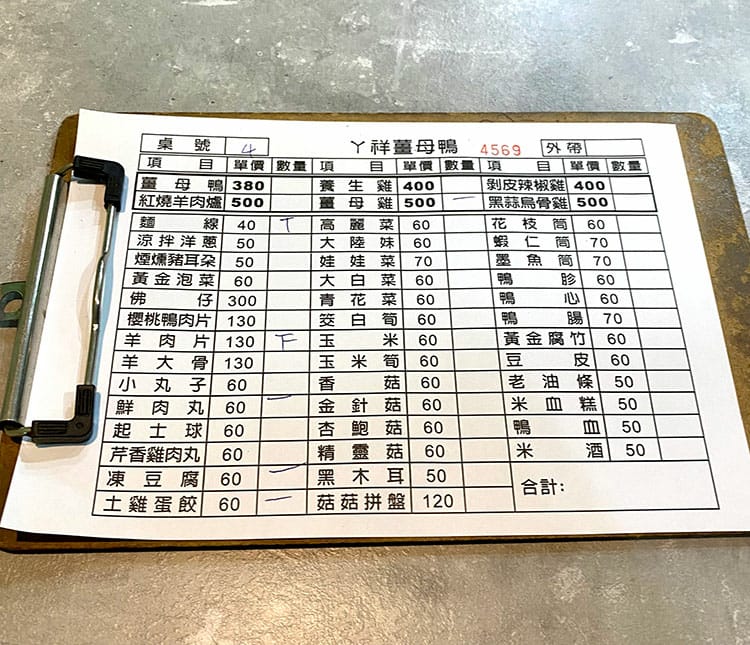 桌號 4 丫祥薑母鴨 4569 外帶
項目 單價 數量 項目 單價 數量 項目 單價 數量
薑母鴨 380 養生雞 400 剝皮辣椒雞 400
紅燒羊肉爐 500 薑母雞 500 一 黑蒜烏骨雞 500
麵線 40 T 高麗菜 60 花枝筒 60
涼拌洋蔥 50 大陸妹 60 蝦仁筒 70
煙燻豬耳朵 50 娃娃菜 70 墨魚筒 70
黃金泡菜 60 大白菜 60 鴨胗 60
佛仔 300 青花菜 60 鴨心 60
櫻桃鴨肉片 130 筊白筍 60 鴨腸 70
羊肉片 130 下 玉米 60 黃金腐竹 60
羊大骨 130 玉米筍 60 豆皮 60
小丸子 60 香菇 60 老油條 50
鮮肉丸 60 一 金針菇 60 米血糕 50
起士球 60 杏鮑菇 60 鴨血 50
芹香雞肉丸 60 精靈菇 60 米酒 50
凍豆腐 60 一 黑木耳 50 合計：
土雞蛋餃 60 一 菇菇拼盤 120